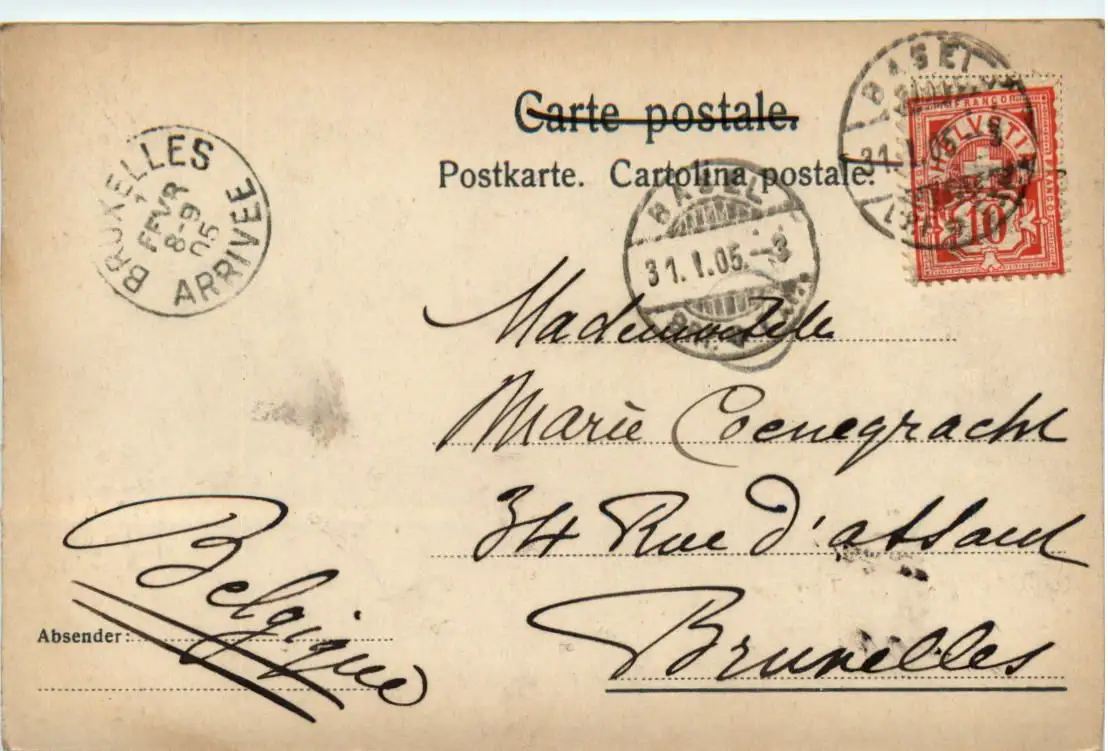 Carte postale.
Postkarte. Cartolina postale.
BRUXELLES
1
FEVR
8-9
05
ARRIVEE
BASEL
31.1.05.-3
BASEL
31.1.05.-3
FRANCO
HELVETIA
FRANCO
10
Mademoiselle
Marie Coenegracht
34 Rue d'assaut
Bruxelles
Belgique
Absender: